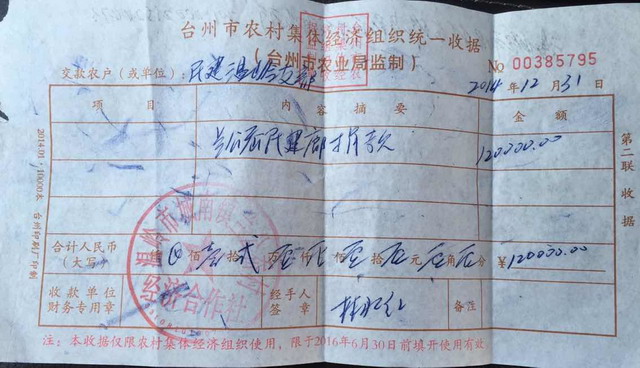 台州市农村集体经济组织统一收据
（台州市农业局监制）
No 00385795
交款农户（或单位）：民建温岭支部
2014年12月31日
项目 内容摘要 金额
民建 捐款 120000.00
合计人民币（大写） 佰壹拾贰万仟佰拾元角分 ¥120000.00
收款单位财务专用章 经手人签章 备注
注：本收据仅限农村集体经济组织使用，限于2016年6月30日前填开使用有效
第二联 收据
2014.01 台州印刷厂印制
经济合作社